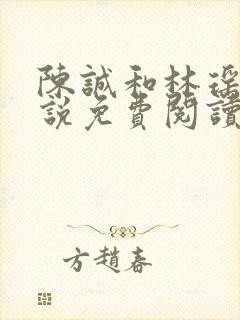 陳誠和林瑤
説免費閱讀
方趙春